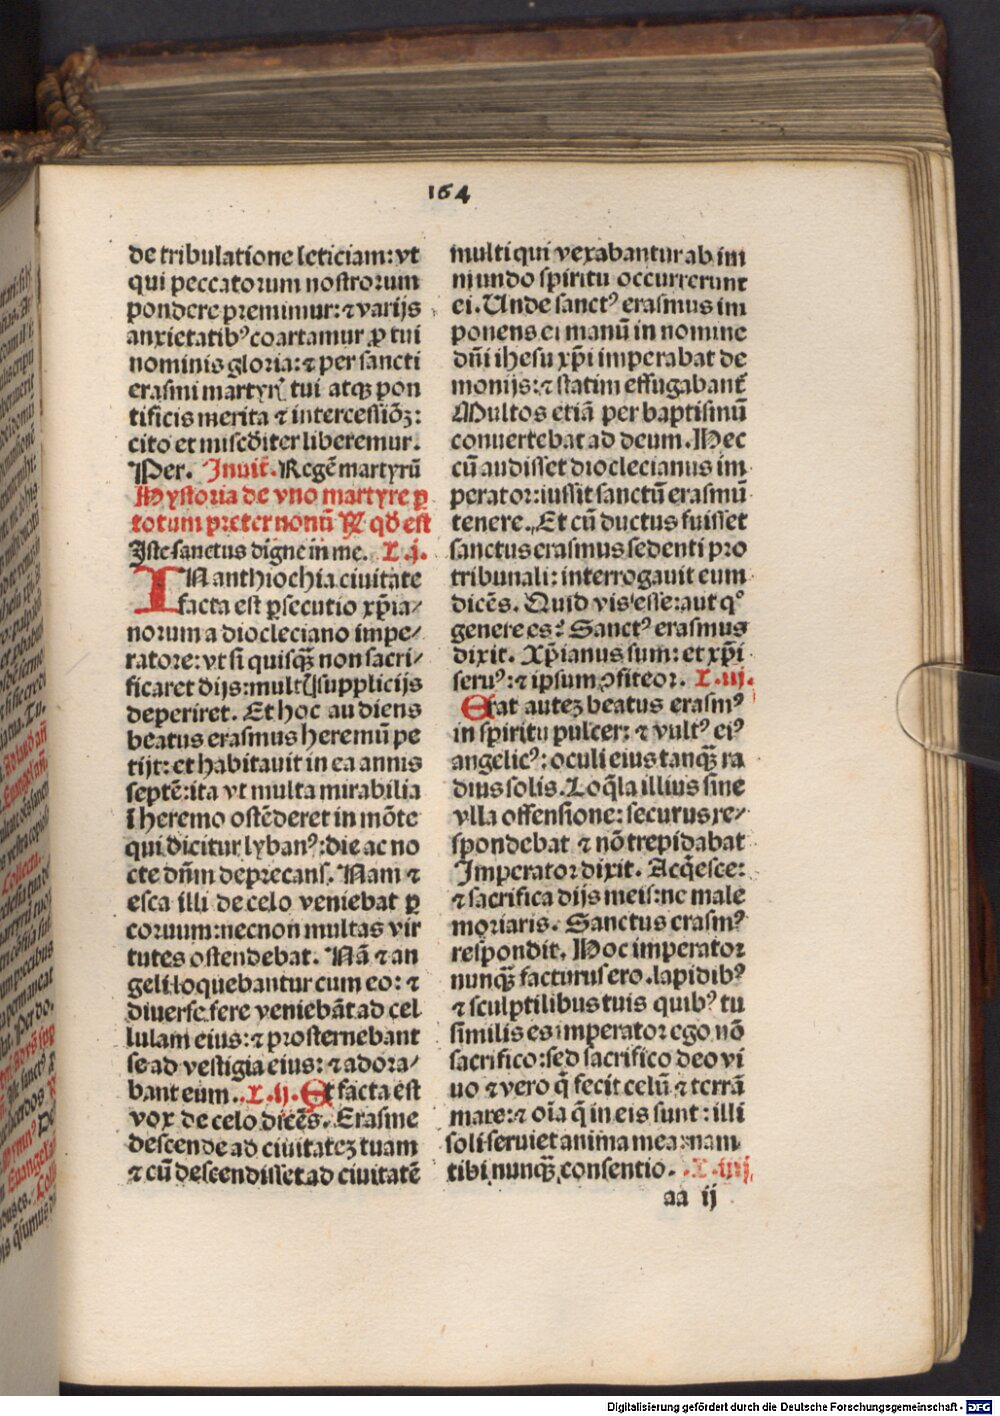 164
de tribulatione leticiam: vt
qui peccatorum nostrorum
pondere premimur: ⁊ varijs
anxietatibꝰ coartamur ꝓ tui
nominis gloria: ⁊ per sancti
erasmi martyrꝭ tui atqꝫ pon
tificis merita ⁊ intercessiōꝫ:
cito et misc̄diter liberemur.
Per. Inuit̄. Regē martyrū
Hystoria de vno martyre ꝑ
totum preter nonū ℟ qd̄ est
Iste sanctus digne in me. L. j.
IN anthiochia ciuitate
facta est ꝑsecutio xp̄ia⸗
norum a diocleciano impe⸗
ratore: vt si quisqꝫ̄ non sacri⸗
ficaret dijs: multꝭ supplicijs
deperiret. Et hoc audiens
beatus erasmus heremū pe
tijt: et habitauit in ea annis
septē: ita vt multa mirabilia
ī heremo ostēderet in mōte
qui dicitur lybanꝰ: die ac no
cte dn̄m deprecans. Nam ⁊
esca illi de celo veniebat ꝑ
coruum: necnon multas vir
tutes ostendebat. Nā ⁊ an
geli loquebantur cum eo: ⁊
diuerse fere veniebāt ad cel
lulam eius: ⁊ prosternebant
se ad vestigia eius: ⁊ adora⸗
bant eum. L. ij. Et facta est
vox de celo dicēs. Erasme
descende ad ciuitatez tuam
⁊ cū descendisset ad ciuitatē
multi qui vexabantur ab im
mundo spiritu occurrerunt
ei. Unde sanctꝰ erasmus im
ponens ei manū in nomine
dn̄i ihesu xp̄i imperabat de
monijs: ⁊ statim effugabant̄
Multos etiā per baptismū
conuertebat ad deum. Hec
cū audisset dioclecianus im
perator: iussit sanctū erasmū
tenere. Et cū ductus fuisset
sanctus erasmus sedenti pro
tribunali: interrogauit eum
dicēs. Quid vis esse: aut qͦ
genere es? Sanctꝰ erasmus
dixit. Xp̄ianus sum: et xp̄i
seruꝰ: ⁊ ipsum ꝯfiteor. L. iij.
Erat autez beatus erasmꝰ
in spiritu pulcer: ⁊ vultꝰ eiꝰ
angelicꝰ: oculi eius tanqꝫ̄ ra
dius solis. Loq̄la illius sine
vlla offensione: securus re⸗
spondebat ⁊ nō trepidabat
Imperator dixit. Acq̄esce:
⁊ sacrifica dijs meis: ne male
moriaris. Sanctus erasmꝰ
respondit. Hoc imperator
nunqꝫ̄ facturus ero. lapidibꝰ
⁊ sculptilibus tuis quibꝰ tu
similis es imperator ego nō
sacrifico: sed sacrifico deo vi
uo ⁊ vero q̄ fecit celū ⁊ terrā
mare: ⁊ oīa q̄ in eis sunt: illi
soli seruiet anima mea: nam
tibi nunqꝫ̄ consentio. L. iiij.
aa ij
Digitalisierung gefördert durch die Deutsche Forschungsgemeinschaft - DFG